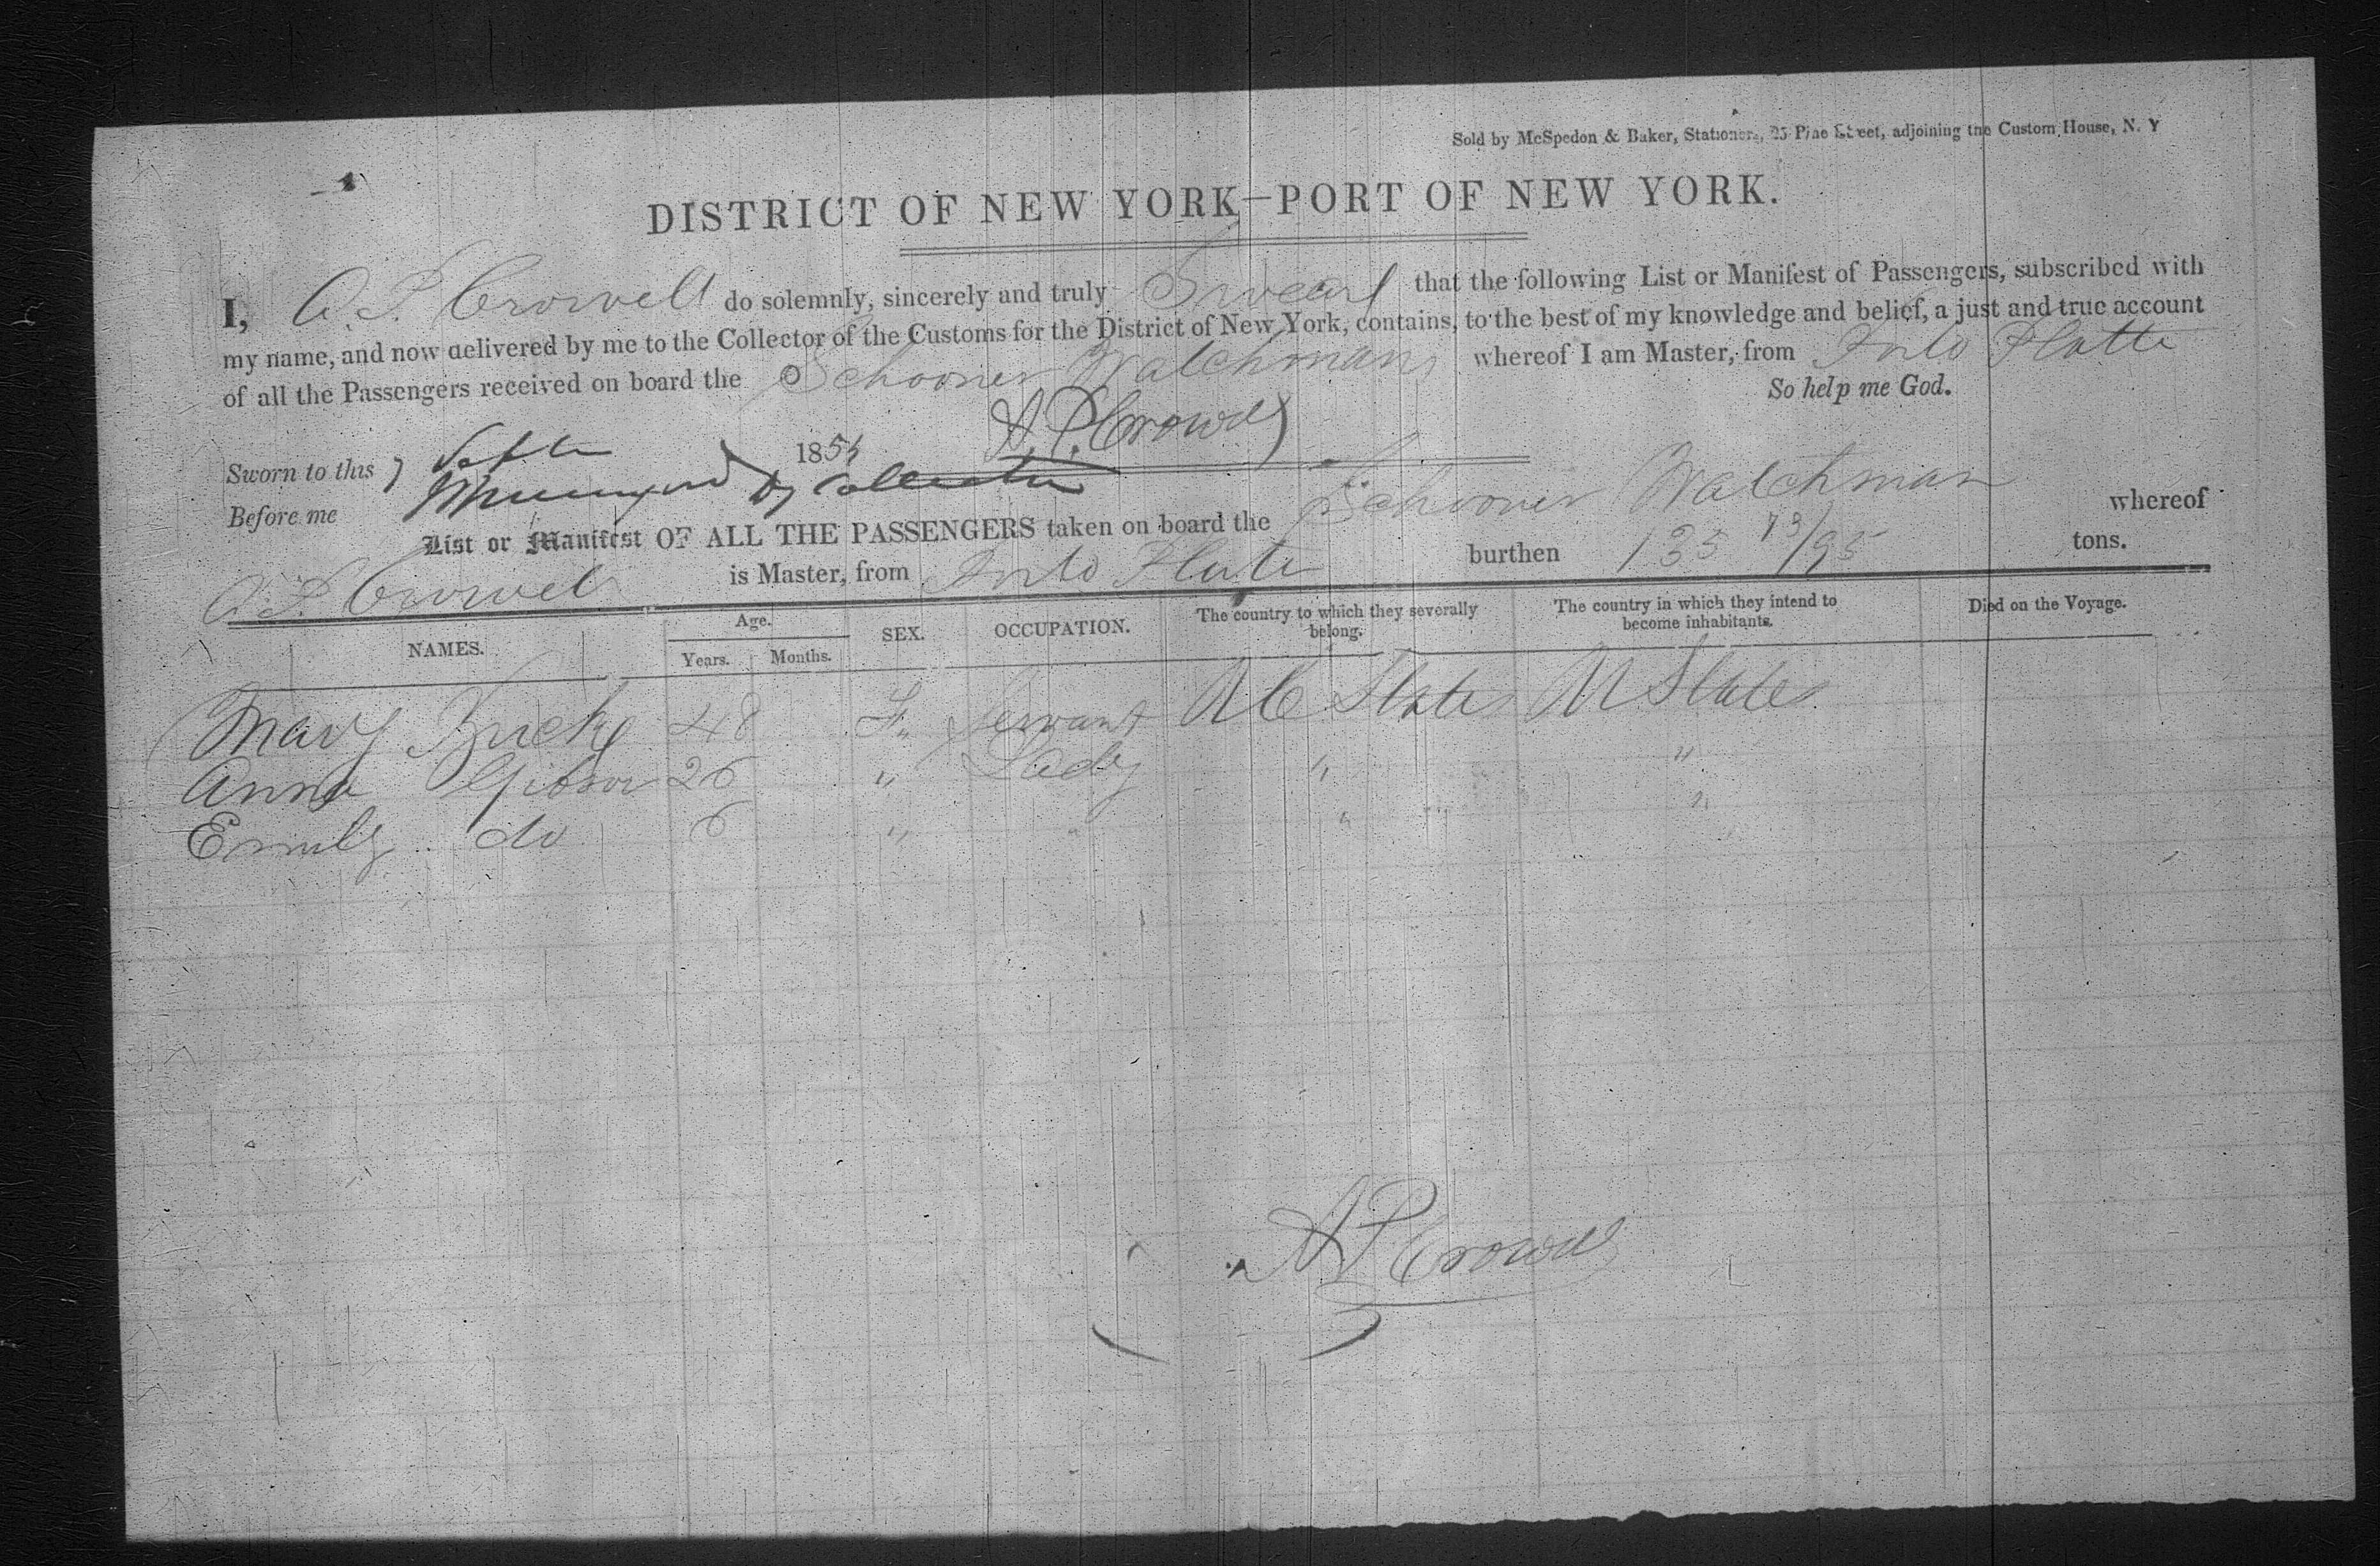 Sold by McSpedon & Baker, Stationers, 25 Pine Street, adjoining the Custom House, N. Y
DISTRICT OF NEW YORK—PORT OF NEW YORK.
I, A. P. Crowell do solemnly, sincerely and truly Swear that the following List or Manifest of Passengers, subscribed with
my name, and now delivered by me to the Collector of the Customs for the District of New York, contains, to the best of my knowledge and belief, a just and true account
of all the Passengers received on board the Schooner Watchman whereof I am Master, from Porto Platte
So help me God.
A. P. Crowell
Sworn to this 1854
Before me Dy Collector
List or Manifest OF ALL THE PASSENGERS taken on board the Schooner Watchman whereof
A. P. Crowel is Master, from Porto Plate burthen 135 13/95 tons.
NAMES. Age. Years. Months. SEX. OCCUPATION. The country to which they severally belong. The country in which they intend to become inhabitants. Died on the Voyage.
Mary 48 F. Servant States States
Anna Gibson 26 " Lady " "
Emily do 6 " " "
A P Crowell